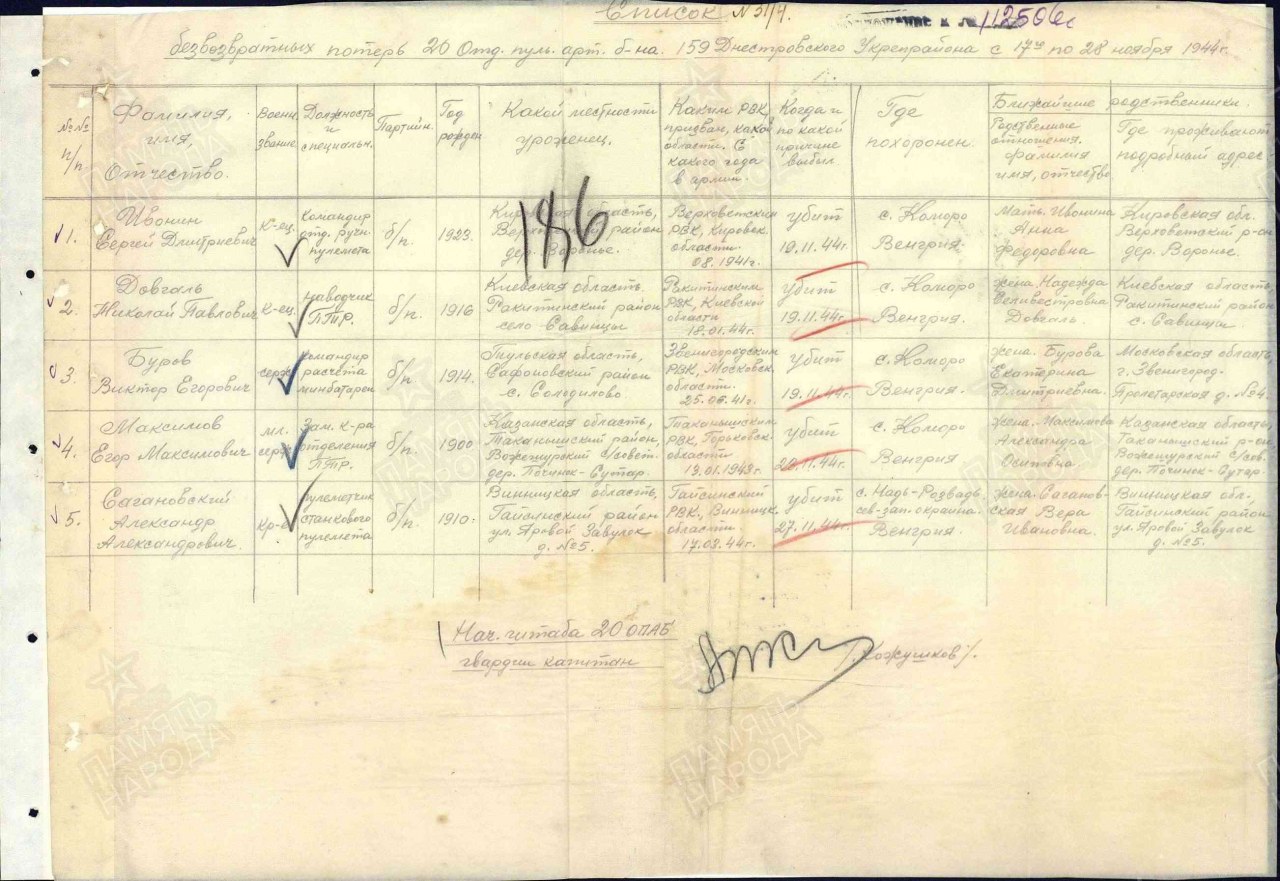 Список №31/4.
112506с
безвозвратных потерь 20 Отд. пул. арт. б-на. 159 Днестровского Укрепрайона с 17го по 28 ноября 1944г.
№№ п/п
Фамилия, имя, Отчество.
Воени. звание
Должность и специальн.
Партийн.
Год рожден
Какой местности уроженец.
Каким РВК, призван, какой области. С какого года в армии.
Когда и по какой причине выбыл
Где похоронен.
Ближайшие родственники.
Родственные отношения. фамилия имя, отчество
Где проживают подробный адрес
186
1. Ивонин Сергей Дмитриевич
к-ец.
командир отд. ручн. пулемета
б/п.
1923.
область, район дер.
Верховетским РВК, Кировск. области. 08.1941г.
убит 19.11.44г.
с. Коморо Венгрия.
Мать. Ивонина Анна Федоровна
Кировская обл. Верховетский р-он дер. Воронье.
2. Довгаль Николай Павлович
к-ец.
наводчик ПТР.
б/п.
1916
Киевская область. Ракитинский район село Савинцы
Ракитинским РВК, Киевской области 18.01.44г.
убит 19.11.44г.
с. Коморо Венгрия.
жена. Надежда Селивестровна Довгаль.
Киевская область, Ракитинский район с. Савинцы
3. Буров Виктор Егорович
серж
командир расчета минбатареи
б/п
1914.
Тульская область, Сафоновский район с. Солодилово
Звенигородским РВК, Московск. области. 25.06.41г.
убит 19.11.44г.
с. Коморо Венгрия.
жена. Бурова Екатерина Дмитриевна
Московская область, г. Звенигород. Пролетарская д. №4.
4. Максимов Егор Максимович
мл. серж
Зам. к-ра отделения ПТР.
б/п.
1900
Казанская область, Таканышский район, Вожежурский с/совет. дер. Починек-Сутар.
Таканышским РВК, Горьковск. области 19.01.1943г.
убит 20.11.44г.
с. Коморо Венгрия.
жена. Максимова Александра Осиповна
Казанская область, Таканышский р-он. Вожежурский с/сов. дер. Починек-Сутар.
5. Сагановский Александр Александрович.
кр-ц
пулеметчик станкового пулемета
б/п.
1910.
Винницкая область, Гайсинский район ул. Яровой Завулок д. №5.
Гайсинский РВК, Винницк. области 17.03.44г.
убит 27.11.44г.
с. Надь-Розвадь сев-зап. окраина. Венгрия.
жена. Сагановская Вера Ивановна.
Винницкая обл., Гайсинский район ул. Яровой Завулок д. №5.
Нач. штаба 20 ОПАБ
гвардии капитан
/Кожушков/.
ПАМЯТЬ НАРОДА
ПАМЯТЬ НАРОДА
ПАМЯТЬ НАРОДА